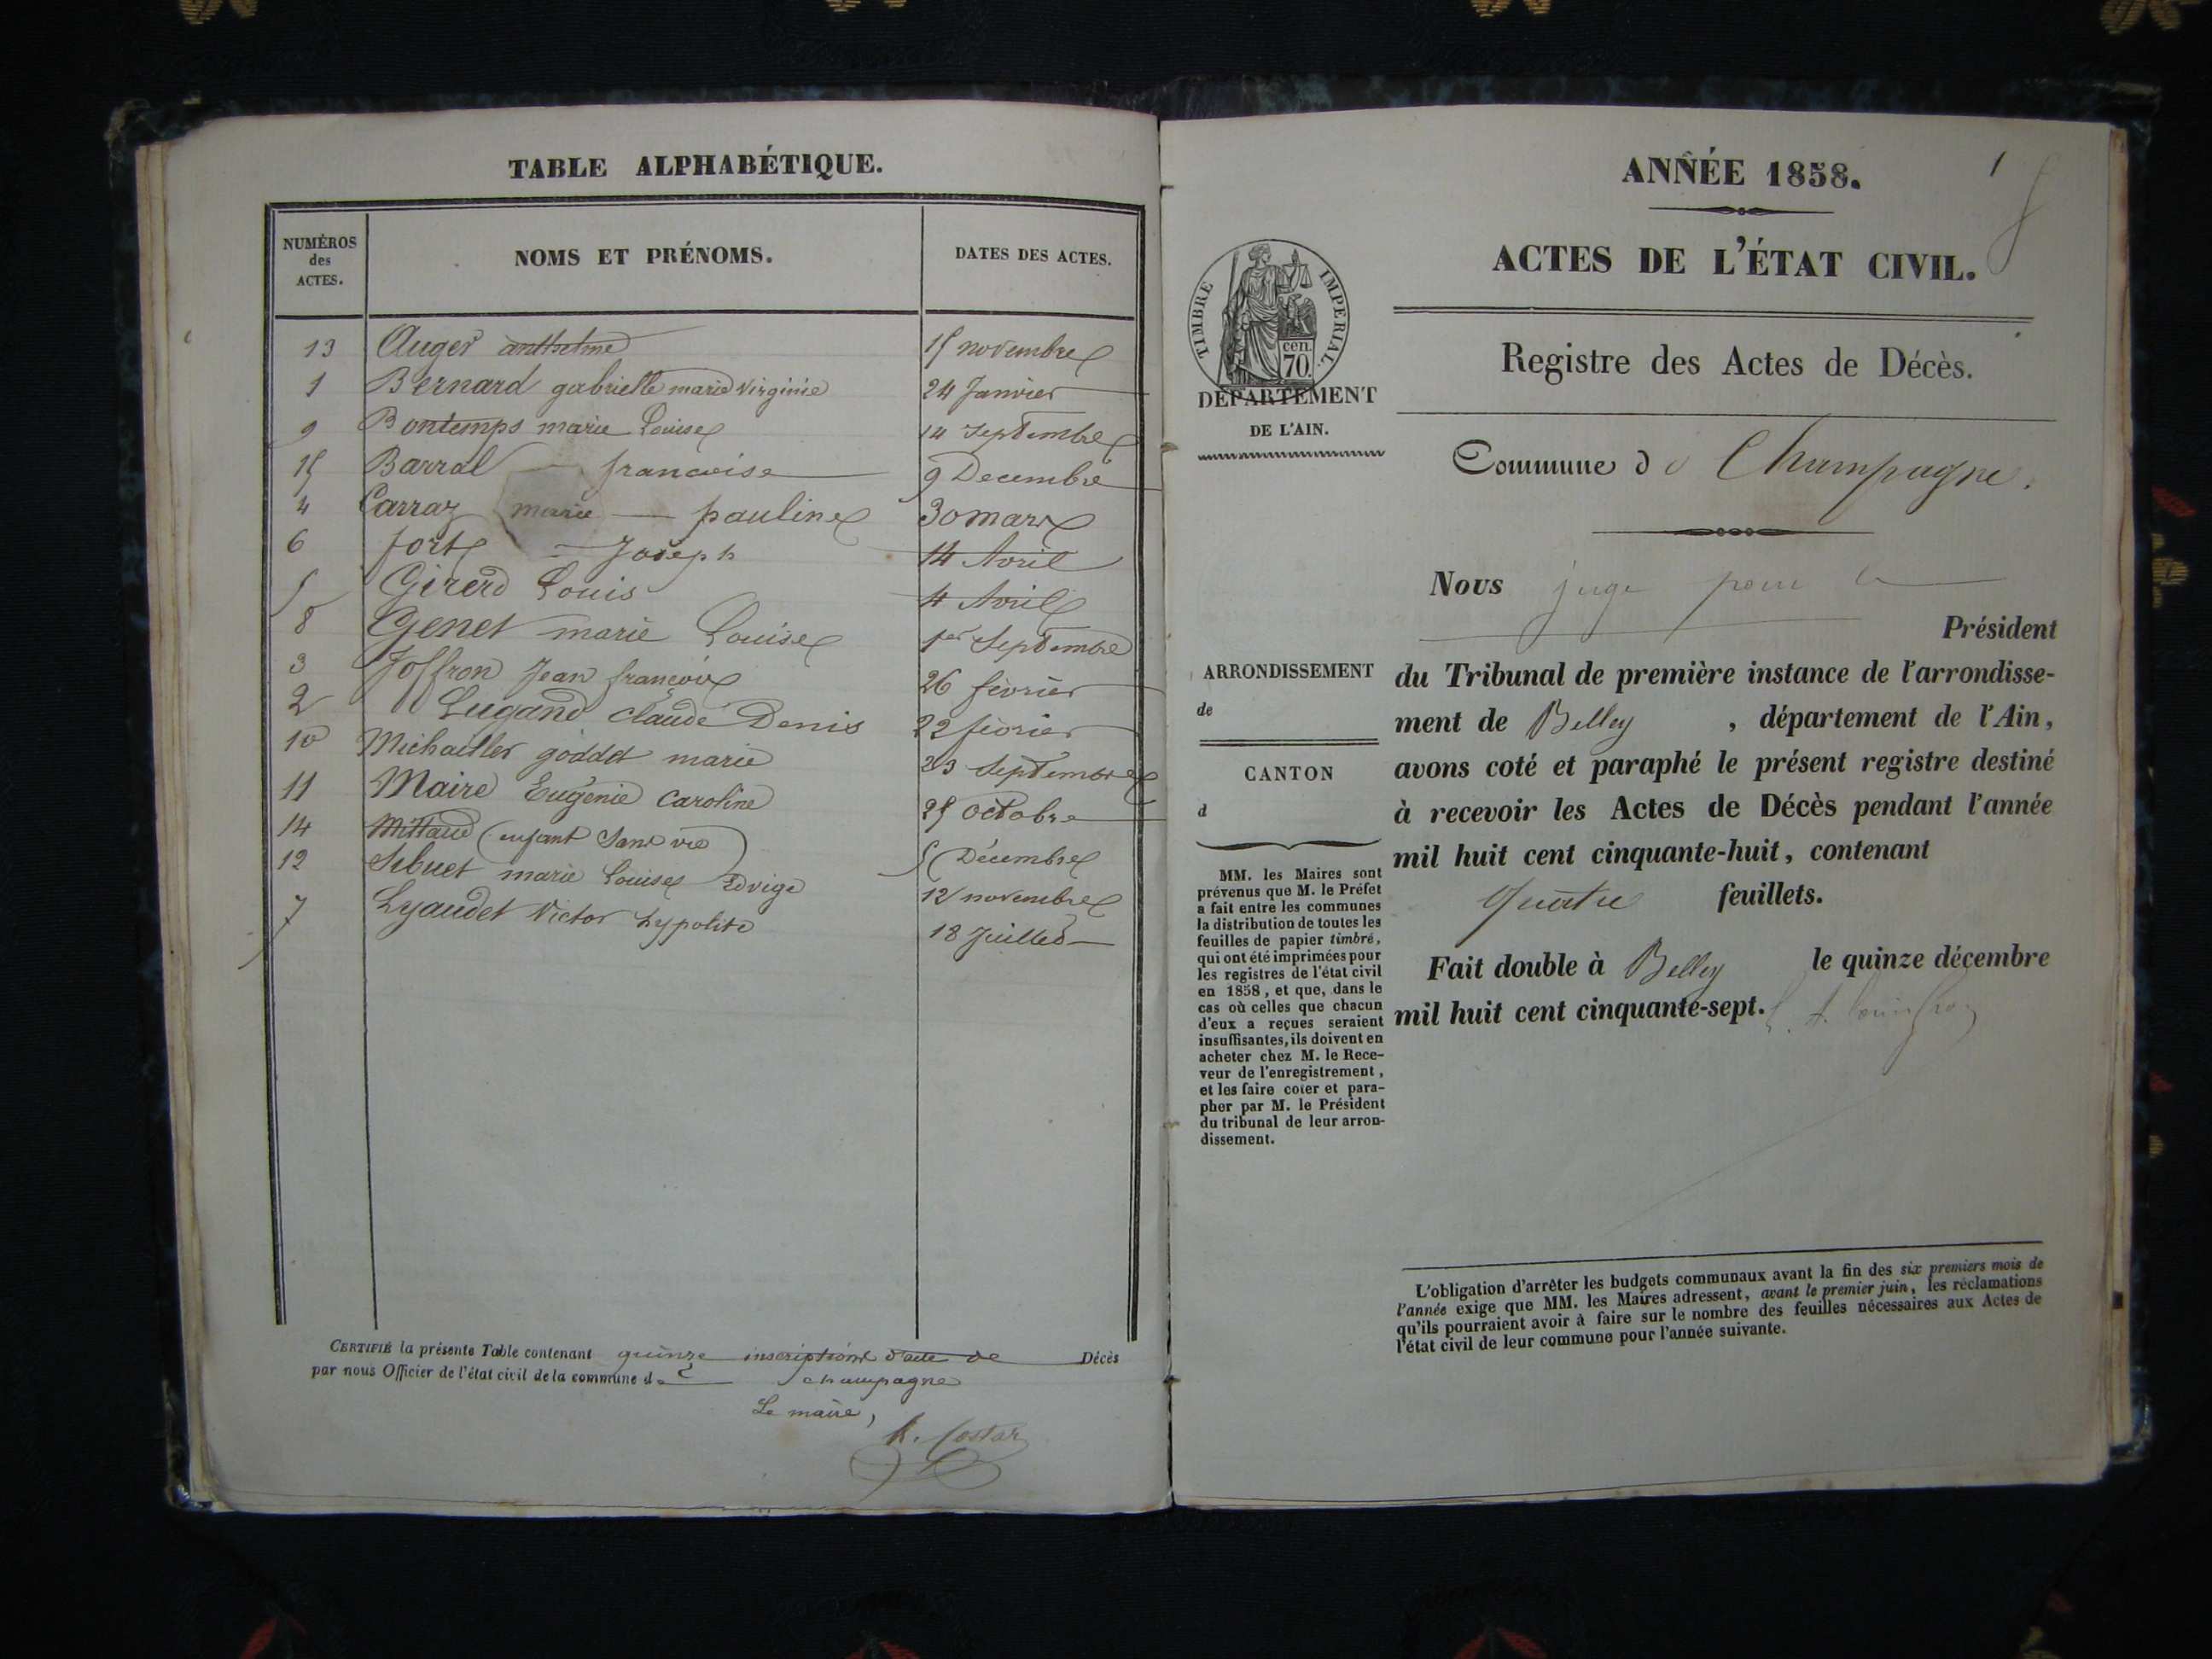 TABLE ALPHABÉTIQUE.
NUMÉROS des ACTES. NOMS ET PRÉNOMS. DATES DES ACTES.
13 Auger anthelme 15 novembre
1 Bernard gabrielle marie Virginie 24 Janvier
9 Bontemps marie Louise 14 Septembre
15 Barral francoise 9 Decembre
4 Carraz marie pauline 30 mars
6 fort Joseph 14 Avril
5 Girerd Louis 4 Avril
8 Genet marie Louise 1er Septembre
3 Joffron Jean françois 26 fevrier
2 Lugand Claude Denis 22 fevrier
10 Michaillet goddet marie 23 Septembre
11 Maire Eugenie Caroline 25 octobre
14 Mittaud (enfant Sans vie) 5 Décembre
12 Sibuet marie Louise Edvige 12 novembre
7 Lyaudet Victor hypolite 18 Juillet
CERTIFIÉ la présente Table contenant quinze inscriptions d'acte de Décès
par nous Officier de l'état civil de la commune de champagne
Le maire,
Costaz
1
ANNÉE 1858.
ACTES DE L'ÉTAT CIVIL.
TIMBRE IMPERIAL.
cen. 70.
DÉPARTEMENT
DE L'AIN.
Registre des Actes de Décès.
Commune de Champagne.
Nous juge pour le
Président
du Tribunal de première instance de l'arrondisse-
ment de Belley, département de l'Ain,
avons coté et paraphé le présent registre destiné
à recevoir les Actes de Décès pendant l'année
mil huit cent cinquante-huit, contenant
quatre feuillets.
Fait double à Belley le quinze décembre
mil huit cent cinquante-sept.
ARRONDISSEMENT
de
CANTON
d
MM. les Maires sont
prévenus que M. le Préfet
a fait entre les communes
la distribution de toutes les
feuilles de papier timbré,
qui ont été imprimées pour
les registres de l'état civil
en 1858, et que, dans le
cas où celles que chacun
d'eux a reçues seraient
insuffisantes, ils doivent en
acheter chez M. le Rece-
veur de l'enregistrement,
et les faire coter et para-
pher par M. le Président
du tribunal de leur arron-
dissement.
L'obligation d'arrêter les budgets communaux avant la fin des six premiers mois de
l'année exige que MM. les Maires adressent, avant le premier juin, les réclamations
qu'ils pourraient avoir à faire sur le nombre des feuilles nécessaires aux Actes de
l'état civil de leur commune pour l'année suivante.